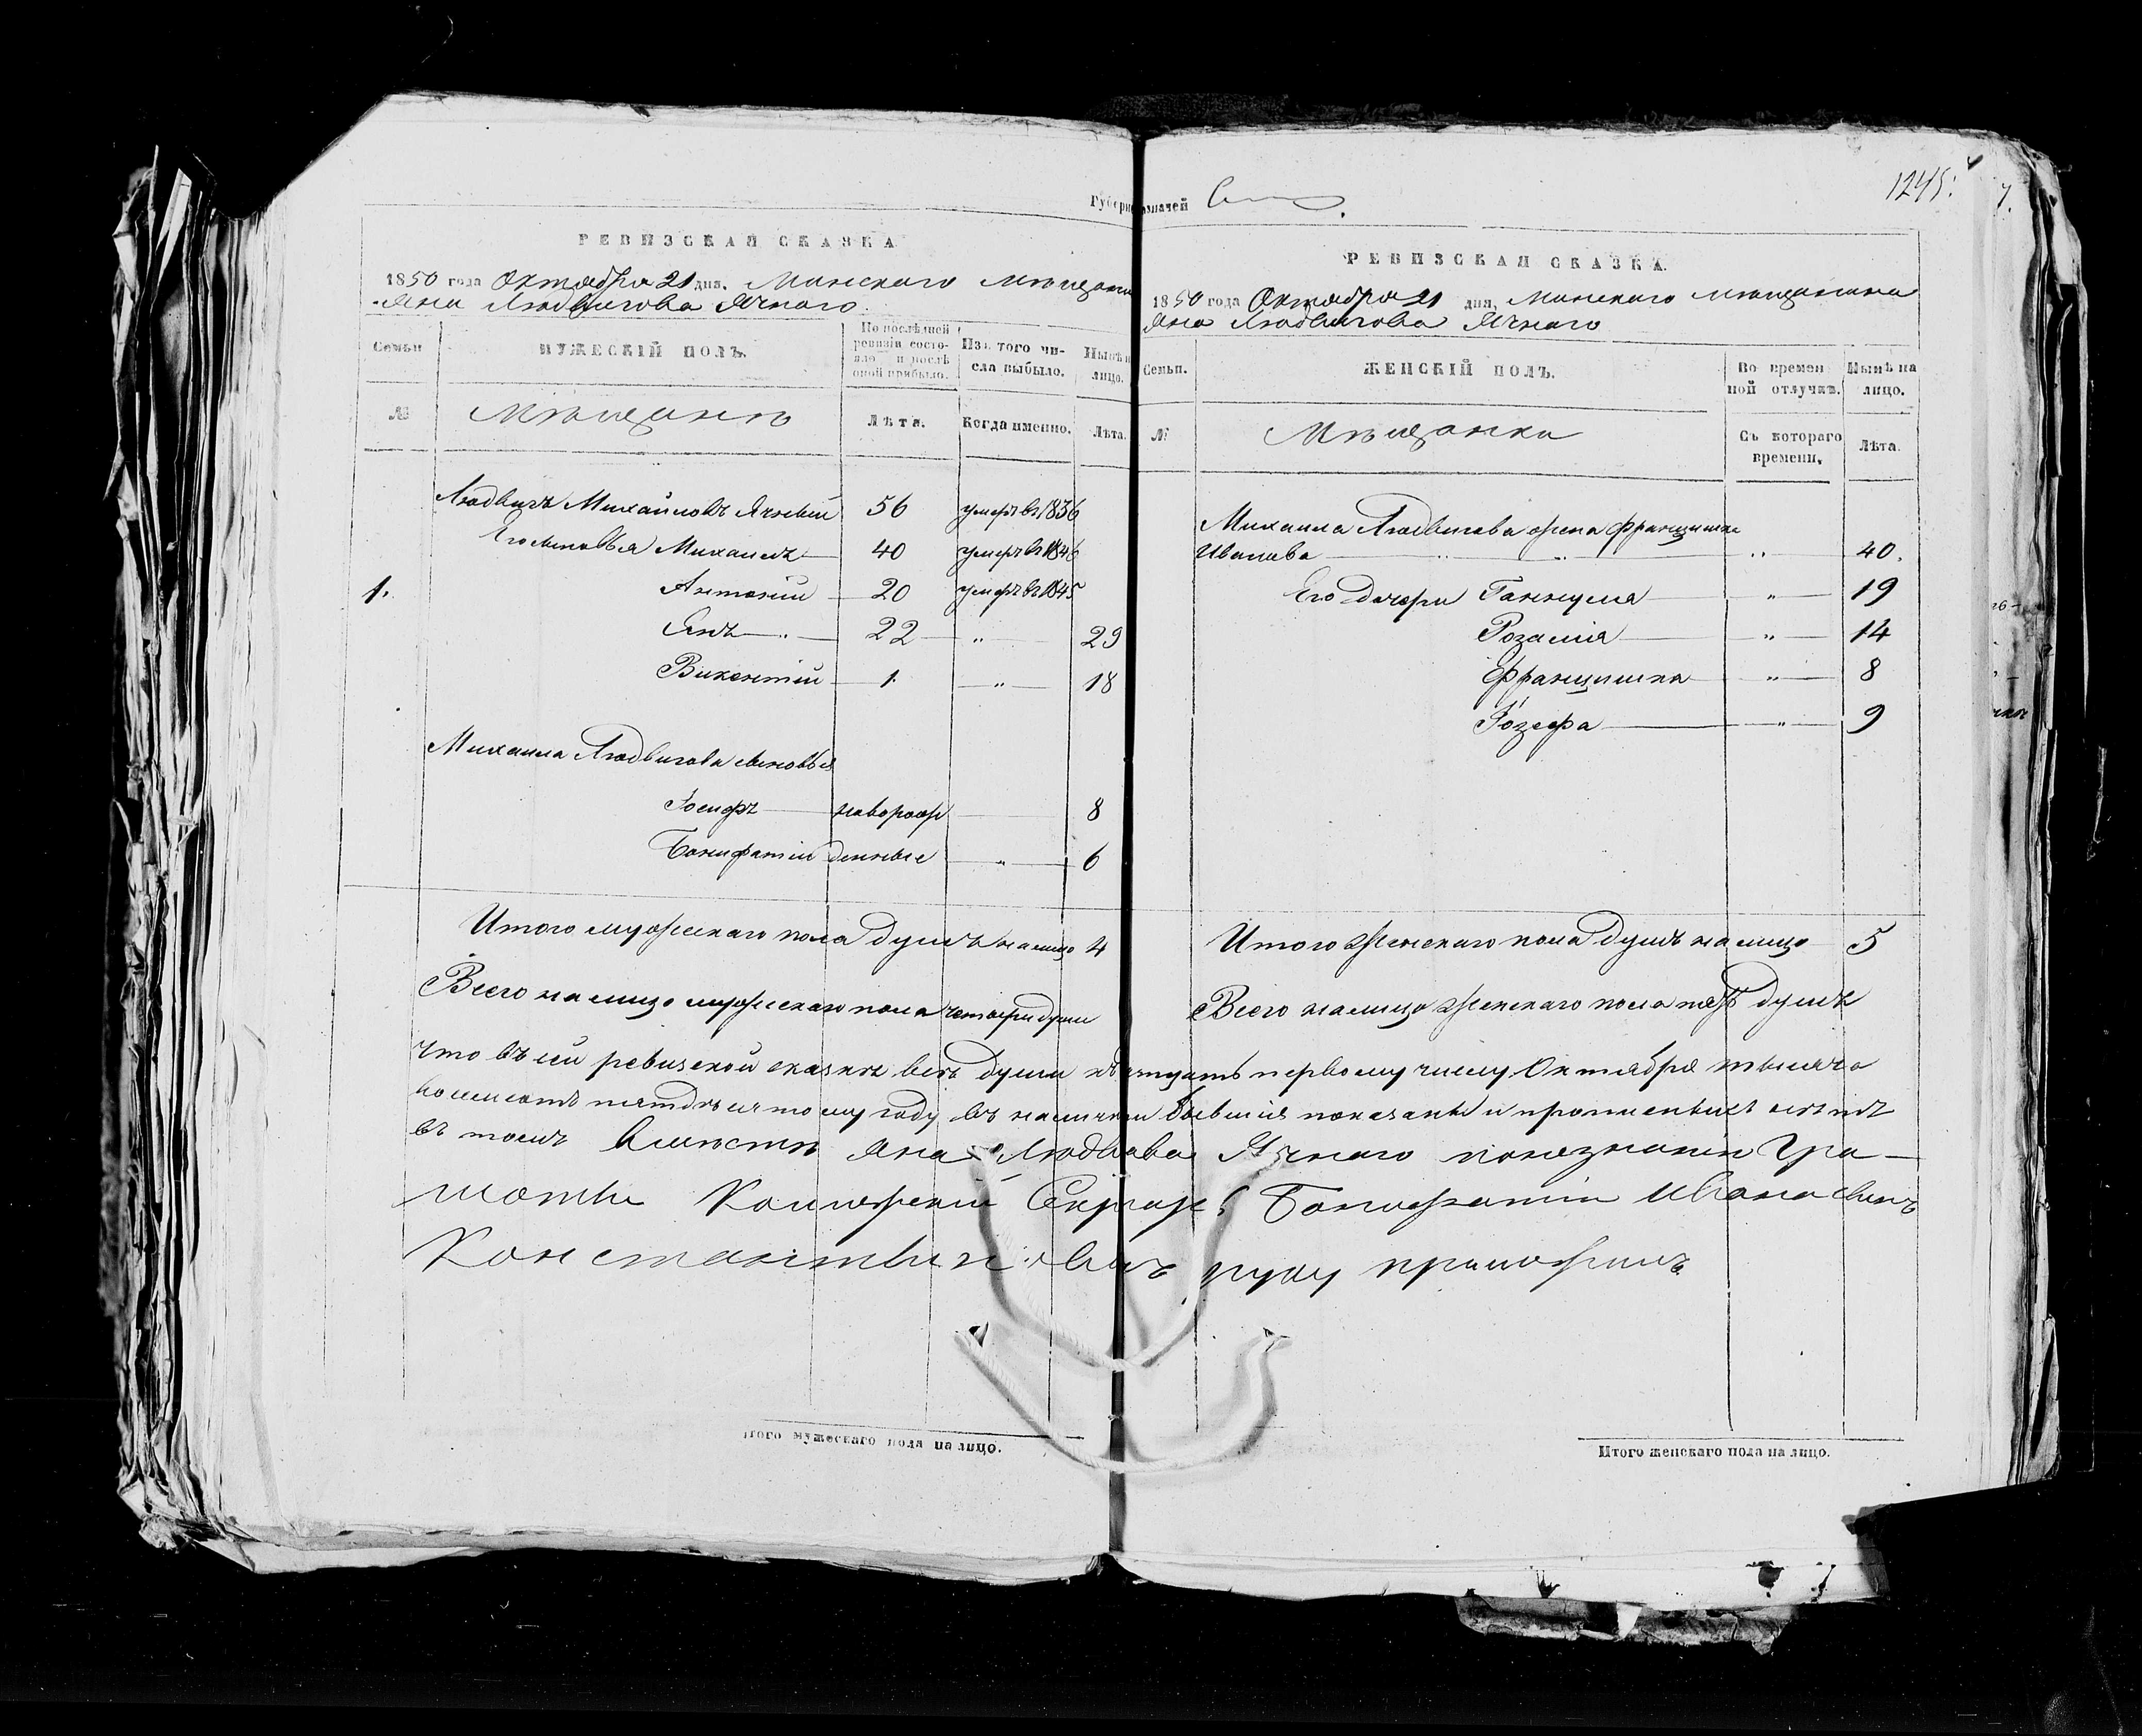 1245.
7.
РЕВИЗСКАЯ СКАЗКА
1850 года Октября 21 дня. Минскаго мѣщанина
Яна Людвигова Ячнаго.
Семьи
МУЖЕСКІЙ ПОЛЪ.
По послѣдней ревизіи состояло и послѣ оной прибыло.
Изъ того числа выбыло.
Нынѣ на лицо.
№
Мѣщанъ
Лѣта.
Когда именно.
Лѣта.
Людвигъ Михайловъ Ячный 56 умеръ въ 1836
Его сыновья Михаилъ 40 умеръ въ 1846
1. Антоній 20 умеръ въ 1845
Янъ 22 „ 29
Викентій 1. „ 18
Михаила Людвигова сыновья
Іосифъ новорож 8
Бонифатій денные „ 6
Итого мужескаго пола душъ налицо 4
Всего налицо мужескаго пола четыре души
РЕВИЗСКАЯ СКАЗКА.
1850 года Октября 21 дня, Минскаго мѣщанина
Яна Людвигова Ячнаго
Семьи.
ЖЕНСКІЙ ПОЛЪ.
Во времен ной отлучкѣ.
Нынѣ на лицо.
№
Мѣщанки
Съ котораго времени.
Лѣта.
Михаила Людвигова жена Францишка
Иванова „ 40.
Его дочери Ганнуля „ 19
Розалія „ 14
Францишка „ 8
Іозефа „ 9
Итого женскаго пола душъ налицо 5
Всего налицо женскаго пола пять душъ
Что въ сей ревизской сказкѣ всѣ души къ первому числу Октября тысяча
восемсотъ пятдесятому году въ наличіи бывшія показаны и прописныхъ нѣтъ
въ томъ вмѣсто Яна Ячнаго по незнанію гра-
моты Бонифатій Ивановъ сынъ
Константиновичъ руку приложилъ
Итого мужескаго пола на лицо.
Итого женскаго пола на лицо.